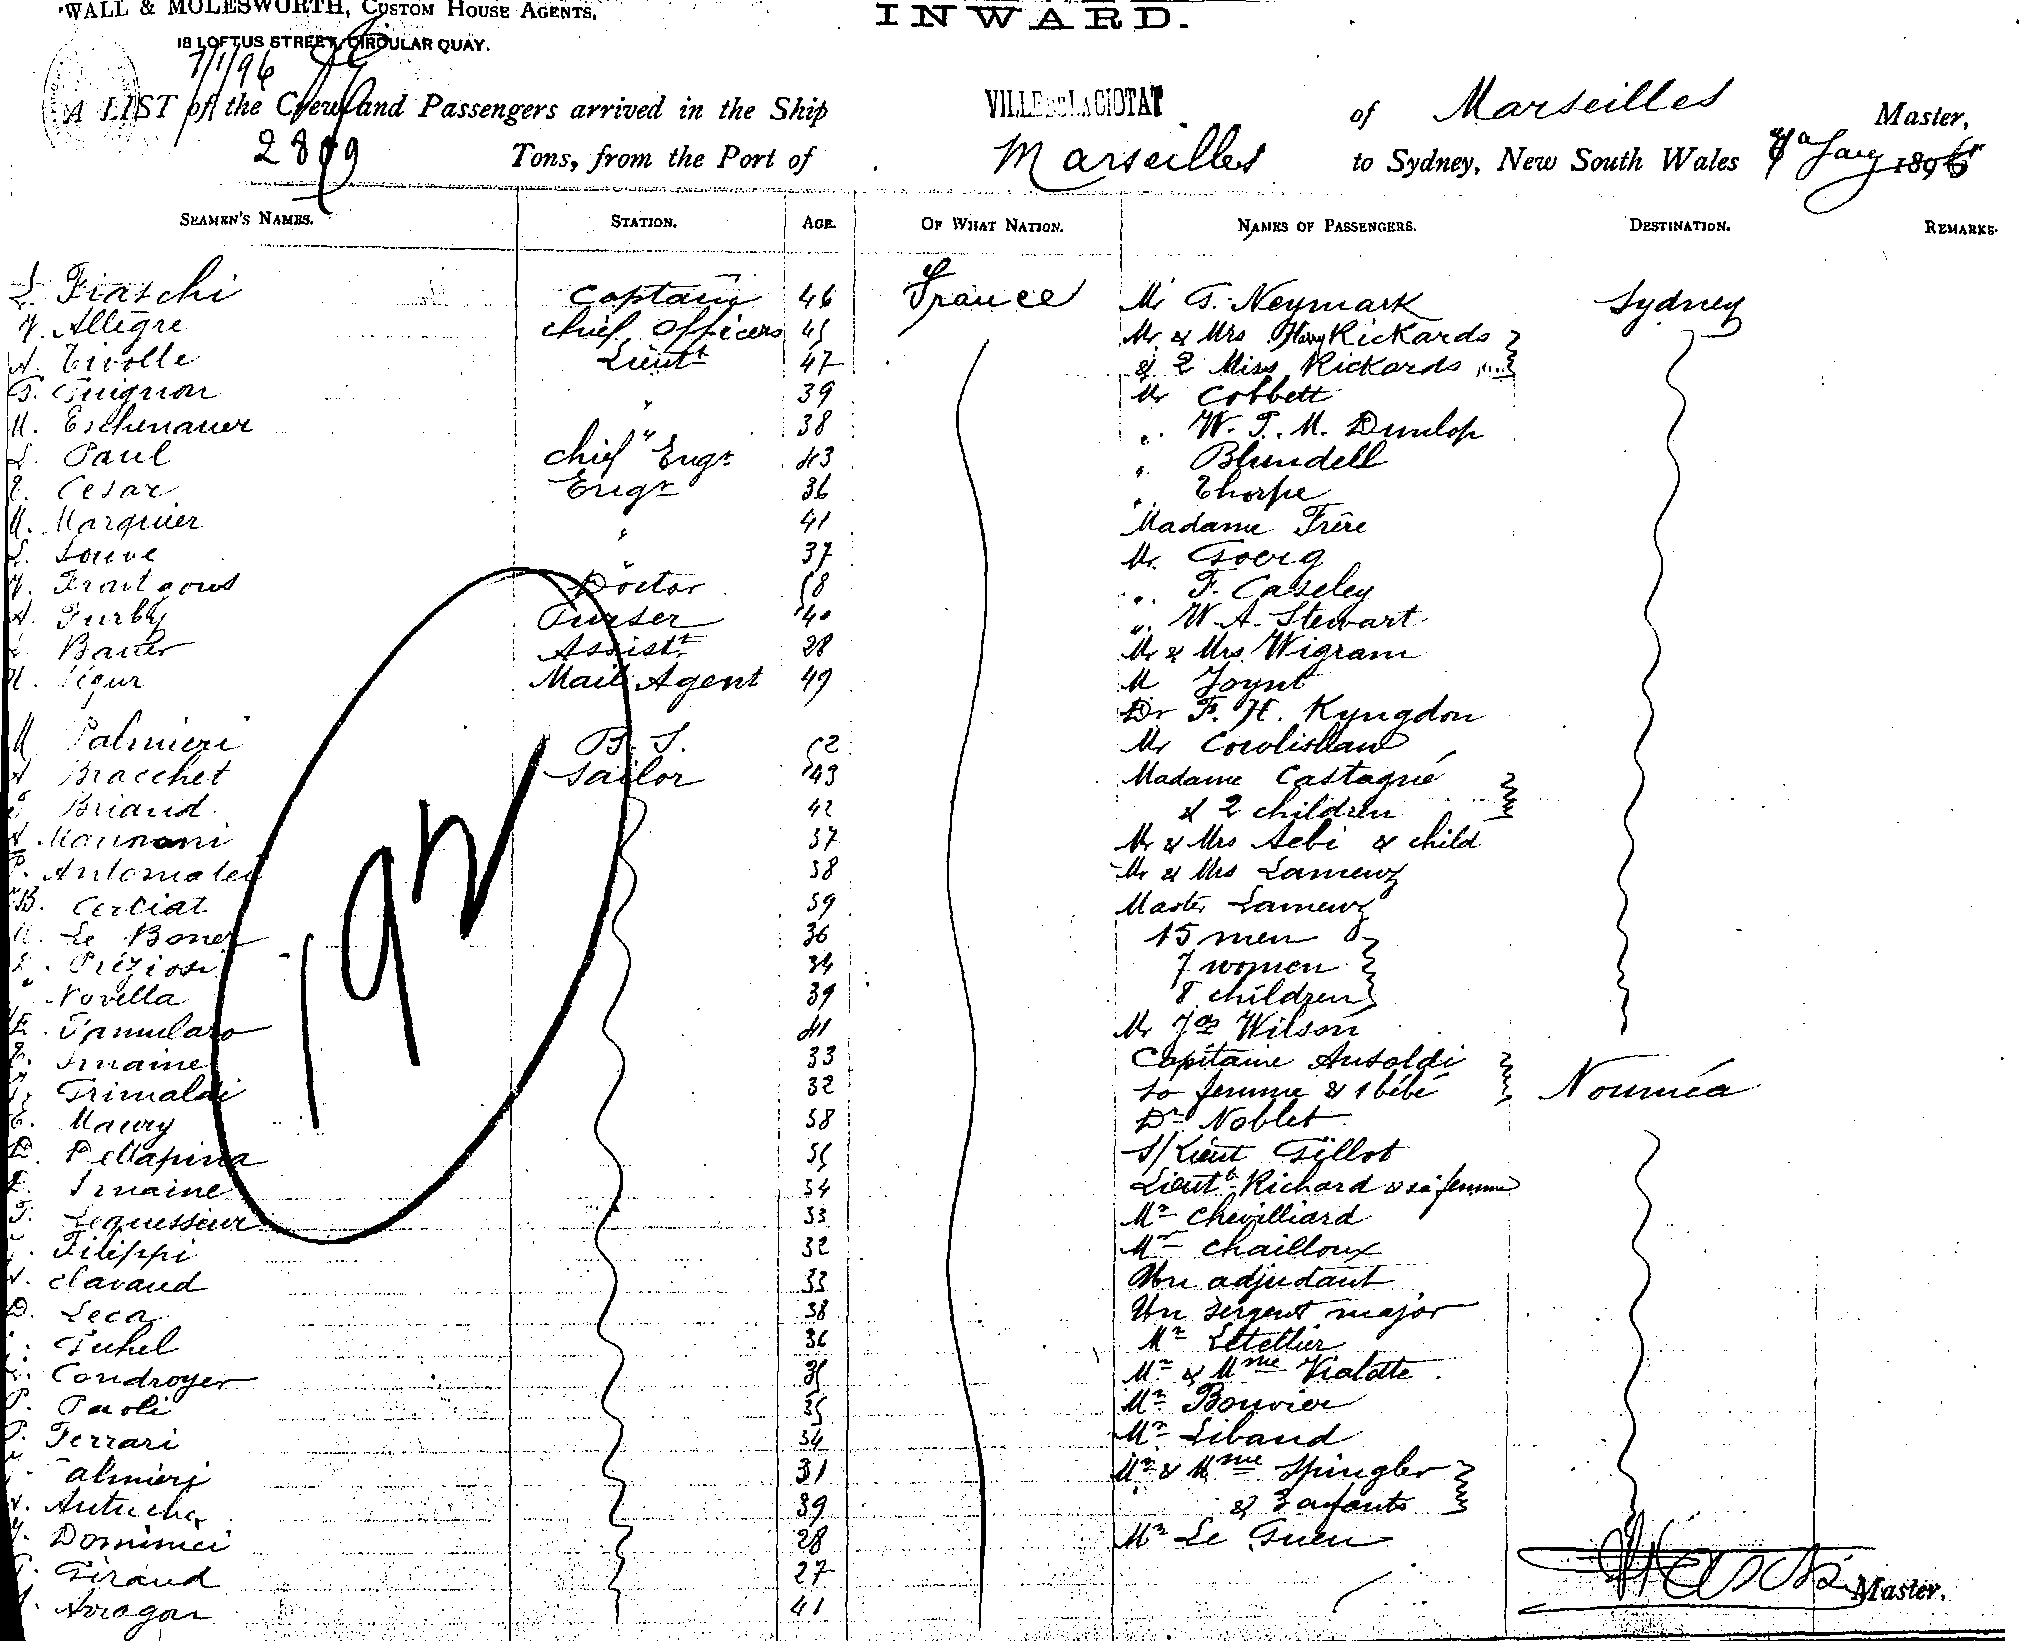 WALL & MOLESWORTH, CUSTOM HOUSE AGENTS,
18 LOFTUS STREET, CIRCULAR QUAY.
INWARD.
7/1/96
A LIST of the Crew and Passengers arrived in the Ship VILLE DE LA CIOTAT of Marseilles Master,
Tons, from the Port of Marseilles to Sydney, New South Wales Jany 1896
SEAMEN'S NAMES. STATION. AGE. OF WHAT NATION. NAMES OF PASSENGERS. DESTINATION. REMARKS.
Fiaschi Captain 46 France Mr G. Neymark Sydney
Allègre chief officers 45 Mr & Mrs Harry Rickards
A. Tivolle Lieutt 47 & 2 Miss Rickards
G. Guignon " 39 Mr Cobbett
M. Eschenauer " 38 " W. G. M. Dunlop
L. Paul chief Engr 43 " Blundell
Cesar Engr 36 " Thorpe
M. Marquier " 41 Madame Frère
Louve " 37 Mr. Goerg
Doctor 58 " F. Caseley
A. Furby Purser 40 " W. A. Stewart
Bauer Assistt 28 Mr & Mrs Wigram
Mail Agent 49 M Joynt
Dr F. H. Kyngdon
M Palmieri B. S. 52 Mr Cowlishaw
A Bracchet Sailor 43 Madame Castagné
Briand 42 & 2 children
37 Mr & Mrs Aebi & child
38 Mr & Mrs
B. 39 Master
Le Boner 36 15 men
Preziosi 34 7 women
Novella 39 8 children
41 Mr Jas Wilson
Imaine 33 Capitaine Ansaldi
Grimaldi 32 sa femme & 1 bébé Nouméa
Maury 38 Dr Noblet
D. Pellapina 35 S/Lieut Gillot
Imaine 34 Lieutt Richard & sa femme
Lequesseur 33 Mr Chevilliard
Filippi 32 Mr Chailloux
Clavaud 33 Un adjudant
D. Leca 38 Un sergent major
Guhel 36 Mr Letellier
Condroyer 35 Mr & Mme Violette
P. Paoli 35 Mr Bouvier
Ferrari 34 Mr Libaud
almieri 31 Mr & Mme Spingler
39 & 3 enfants
Dominici 28 Mr Le Guen
Giraud 27
Aragon 41
Master.
192